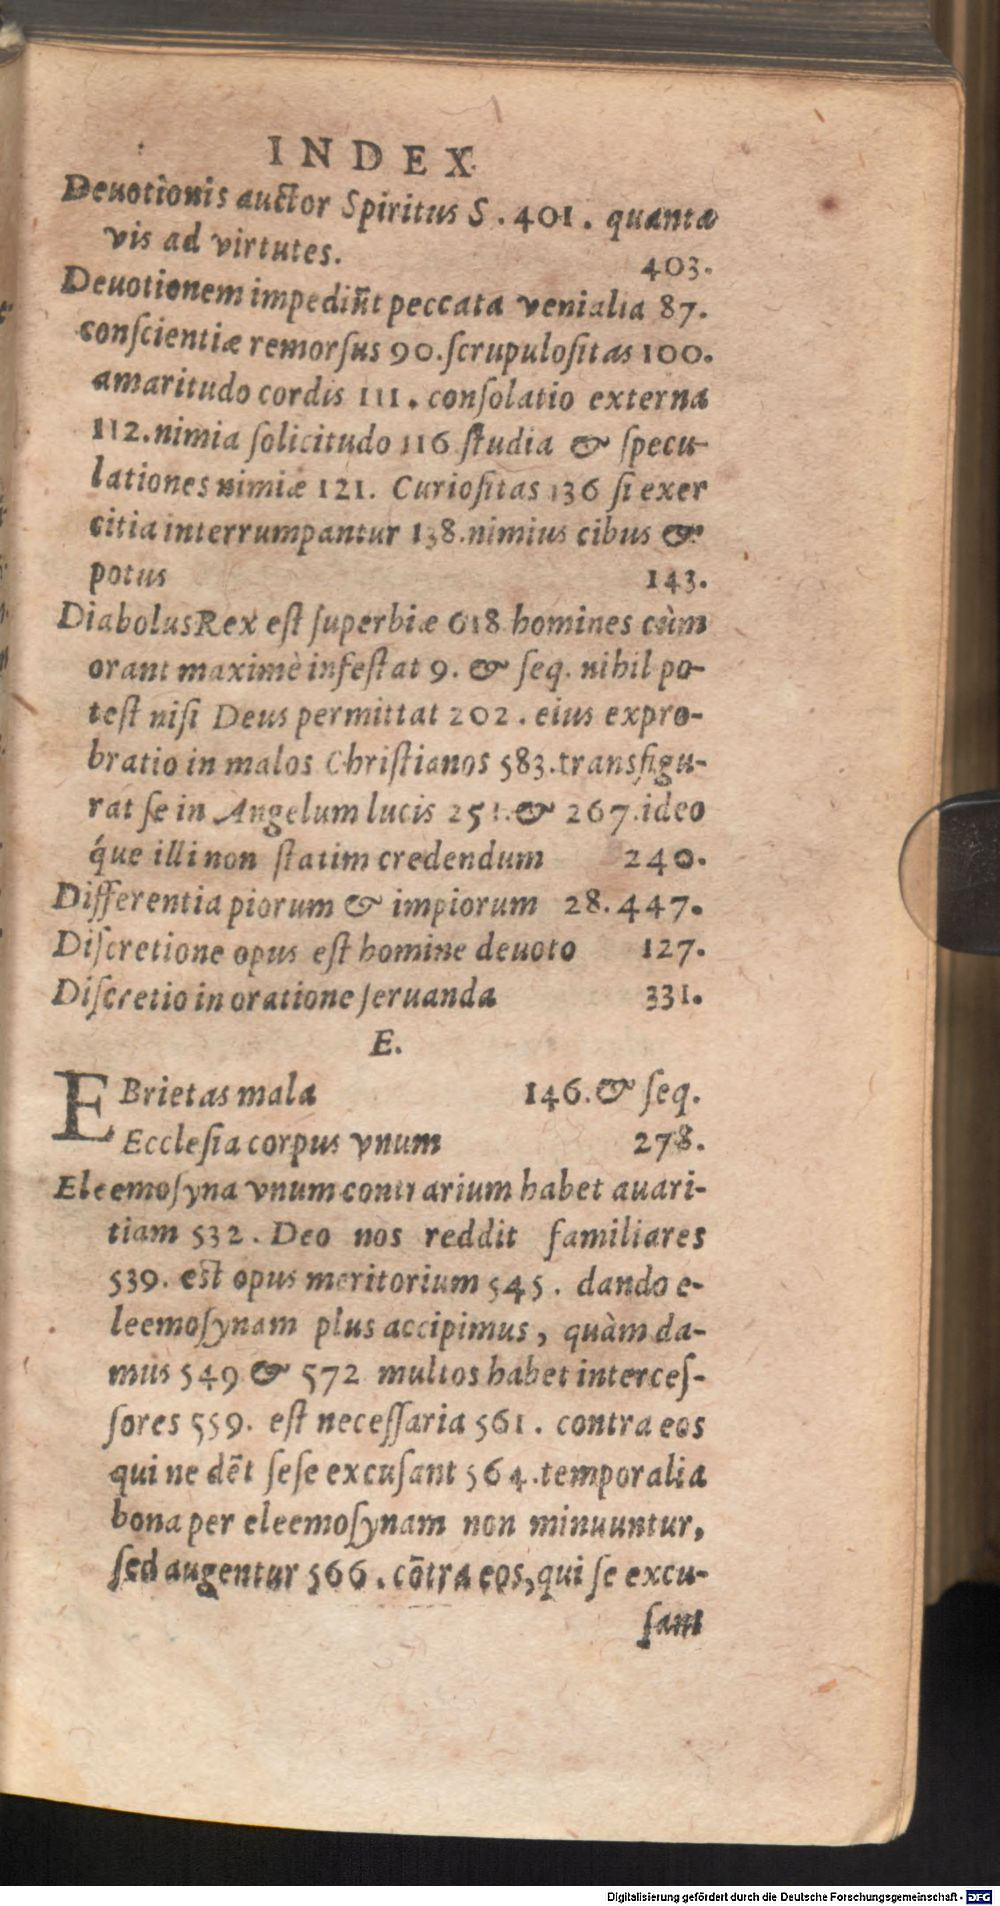 INDEX
Deuotionis auctor Spiritus S. 401. quanta
vis ad virtutes. 403.
Deuotionem impediũt peccata venialia 87.
conſcientiæ remorſus 90. ſcrupuloſitas 100.
amaritudo cordis 111. conſolatio externa
112. nimia ſolicitudo 116 ſtudia & ſpecu-
lationes nimiæ 121. Curioſitas 136 ſi exer
citia interrumpantur 138. nimius cibus &
potus 143.
Diabolus Rex eſt ſuperbiæ 618 homines cùm
orant maximè infeſtat 9. & ſeq. nihil po-
teſt niſi Deus permittat 202. eius expro-
bratio in malos Chriſtianos 583. transfigu-
rat ſe in Angelum lucis 251. & 267. ideo
q́ue illi non ſtatim credendum 240.
Differentia piorum & impiorum 28. 447.
Diſcretione opus eſt homine deuoto 127.
Diſcretio in oratione ſeruanda 331.
E.
EBrietas mala 146. & ſeq.
Eccleſia corpus vnum 278.
Eleemoſyna vnum contrarium habet auari-
tiam 532. Deo nos reddit familiares
539. est opus meritorium 545. dando e-
leemoſynam plus accipimus, quàm da-
mus 549 & 572 multos habet interceſ-
ſores 559. eſt neceſſaria 561. contra eos
qui ne dẽt ſeſe excuſant 564. temporalia
bona per eleemoſynam non minuuntur,
ſed augentur 566. cõtra eos, qui ſe excu-
ſant
Digitalisierung gefördert durch die Deutsche Forschungsgemeinschaft - DFG